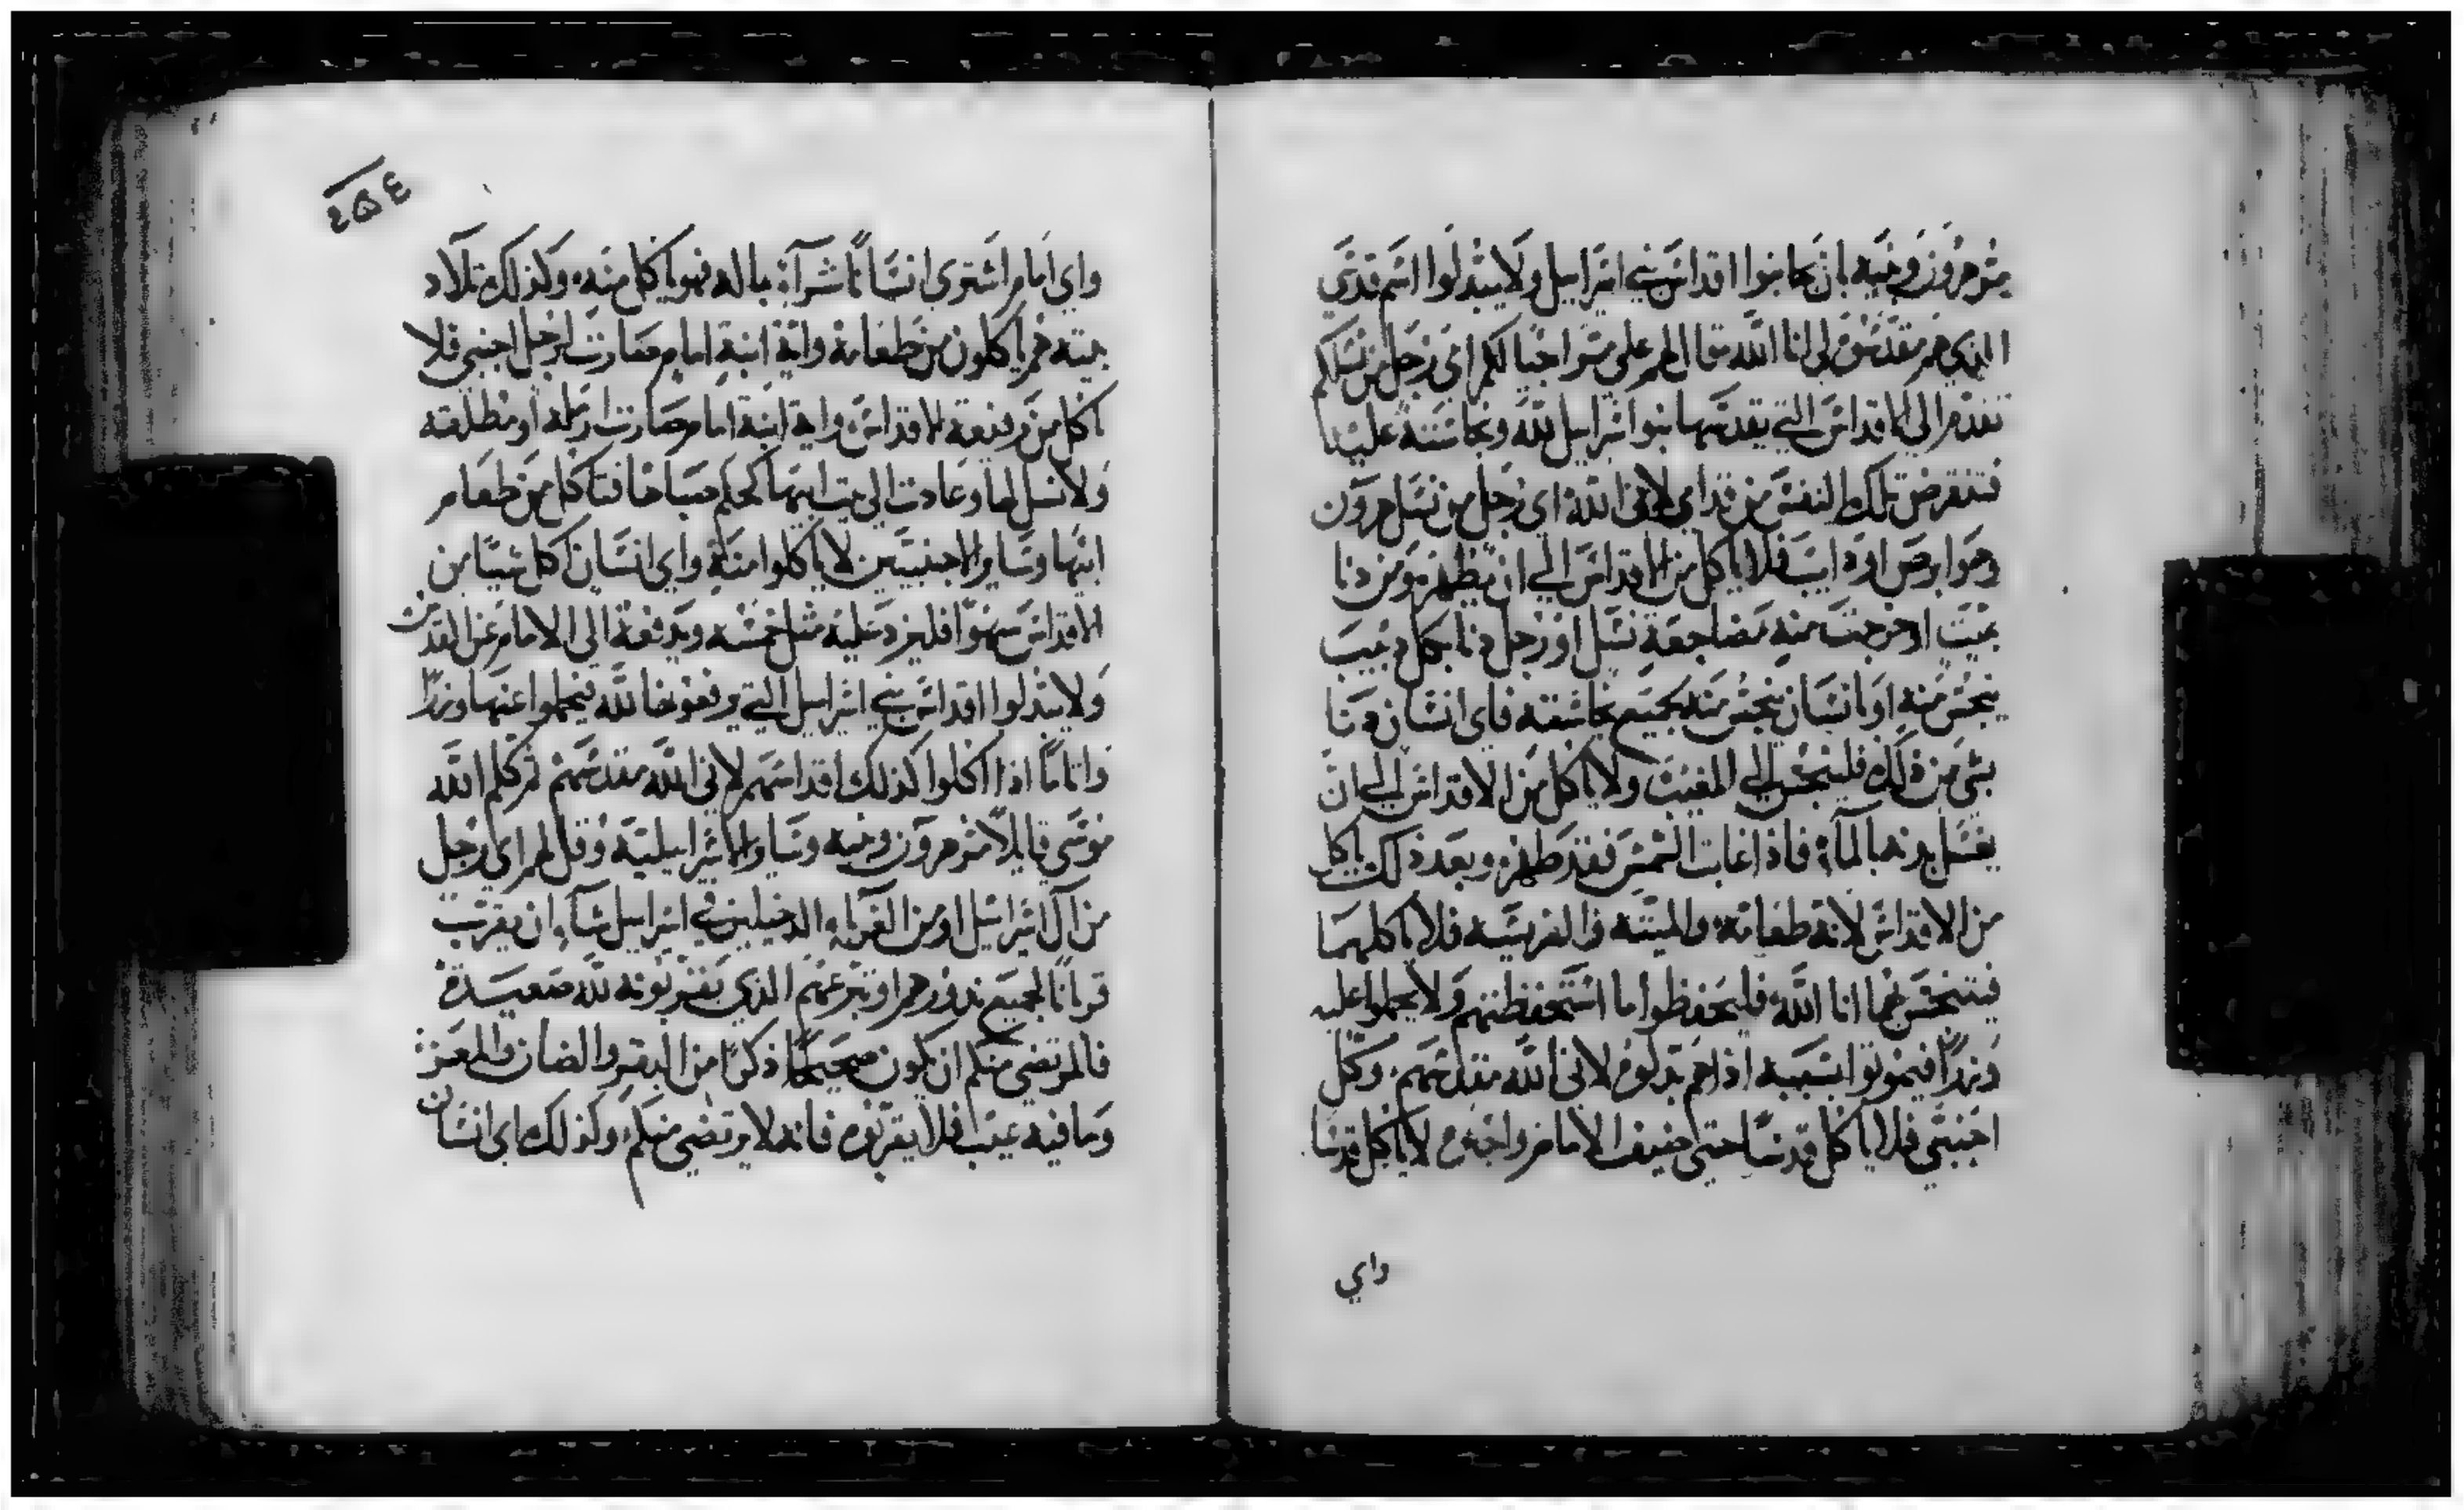 مُر هرون وبنيه بان يجانبوا اقداس بني اسرائيل ولا يبتذلوا اسم قدسي
الذي هم مقدسون لي انا الله قال لهم على مر اجيالكم اي رجل من نسلكم
تقدم الى الاقداس التي يقدسها بنوا اسرائيل لله ونجاسته عليها
فتنقرض تلك النفس من قدامي لاني الله اي رجل من نسل هرون
وهو ابرص او ذايب فلا ياكل من الاقداس الى ان يطهر ومن دنا
بميت او خرجت منه مضاجعة نسل او رجل دنا بكل دبيب
ينجس منه او بانسان ينجس منه بجميع نجاسته فاي انسان دنا
بشي من ذلك فلينجس الى المغيب ولا ياكل من الاقداس الى ان
يغسل بدنه بالمآء فاذا غابت الشمس فقد طهر وبعد ذلك ياكل
من الاقداس لانه طعامه والميتة والفريسة فلا ياكلهما
فيتنجس بهما انا الله فليحفظوا ما استحفظتهم ولا يحملوا عليه
وزرًا فيموتوا بسببه اذا هم بذلوه لاني الله مقدسهم وكل
اجنبي فلا ياكل قدسًا حتى ضيف الامام واجيره لا ياكل قدسا
واي
٤٥٤
واي امام اشترى انسانًا شرآء بماله فهو ياكل منه وكذلك تلاد
بيته هم ياكلون من طعامه واية ابنة امام صارت لرجل اجنبي فلا
تاكل من رفيعة الاقداس واية ابنة امام صارت ارملة او مطلقه
ولا نسل لها وعادت الى بيت ابيها كحكم صباها فتاكل من طعام
ابيها وساير الاجنبيين لا ياكلوا منه واي انسان اكل شيئًا من
الاقداس سهوًا فليزد عليه مثل خمسه ويدفعه الى الامام عن القدس
ولا يبتذلوا اقداس بني اسرائيل التي يرفعونها لله فيحملوا عنها وزرًا
واثامًا اذا اكلوا كذلك اقداسهم لاني الله مقدسهم ثم كلم الله
موسى قايلًا مر هرون وبنيه وساير الاسرايلية وقل لهم اي رجل
من آل اسرائيل او من الغرباء الدخيلين في اسرائيل شآء ان يقرب
قربانًا لجميع نذورهم او تبرعهم الذي يقربونه لله صعيدة
فالمرتضى منكم ان يكون صحيحًا ذكرًا من البقر والضان والمعز
وما فيه عيب فلا يقربوه فانه لا يرتضى منكم وكذلك اي انسان